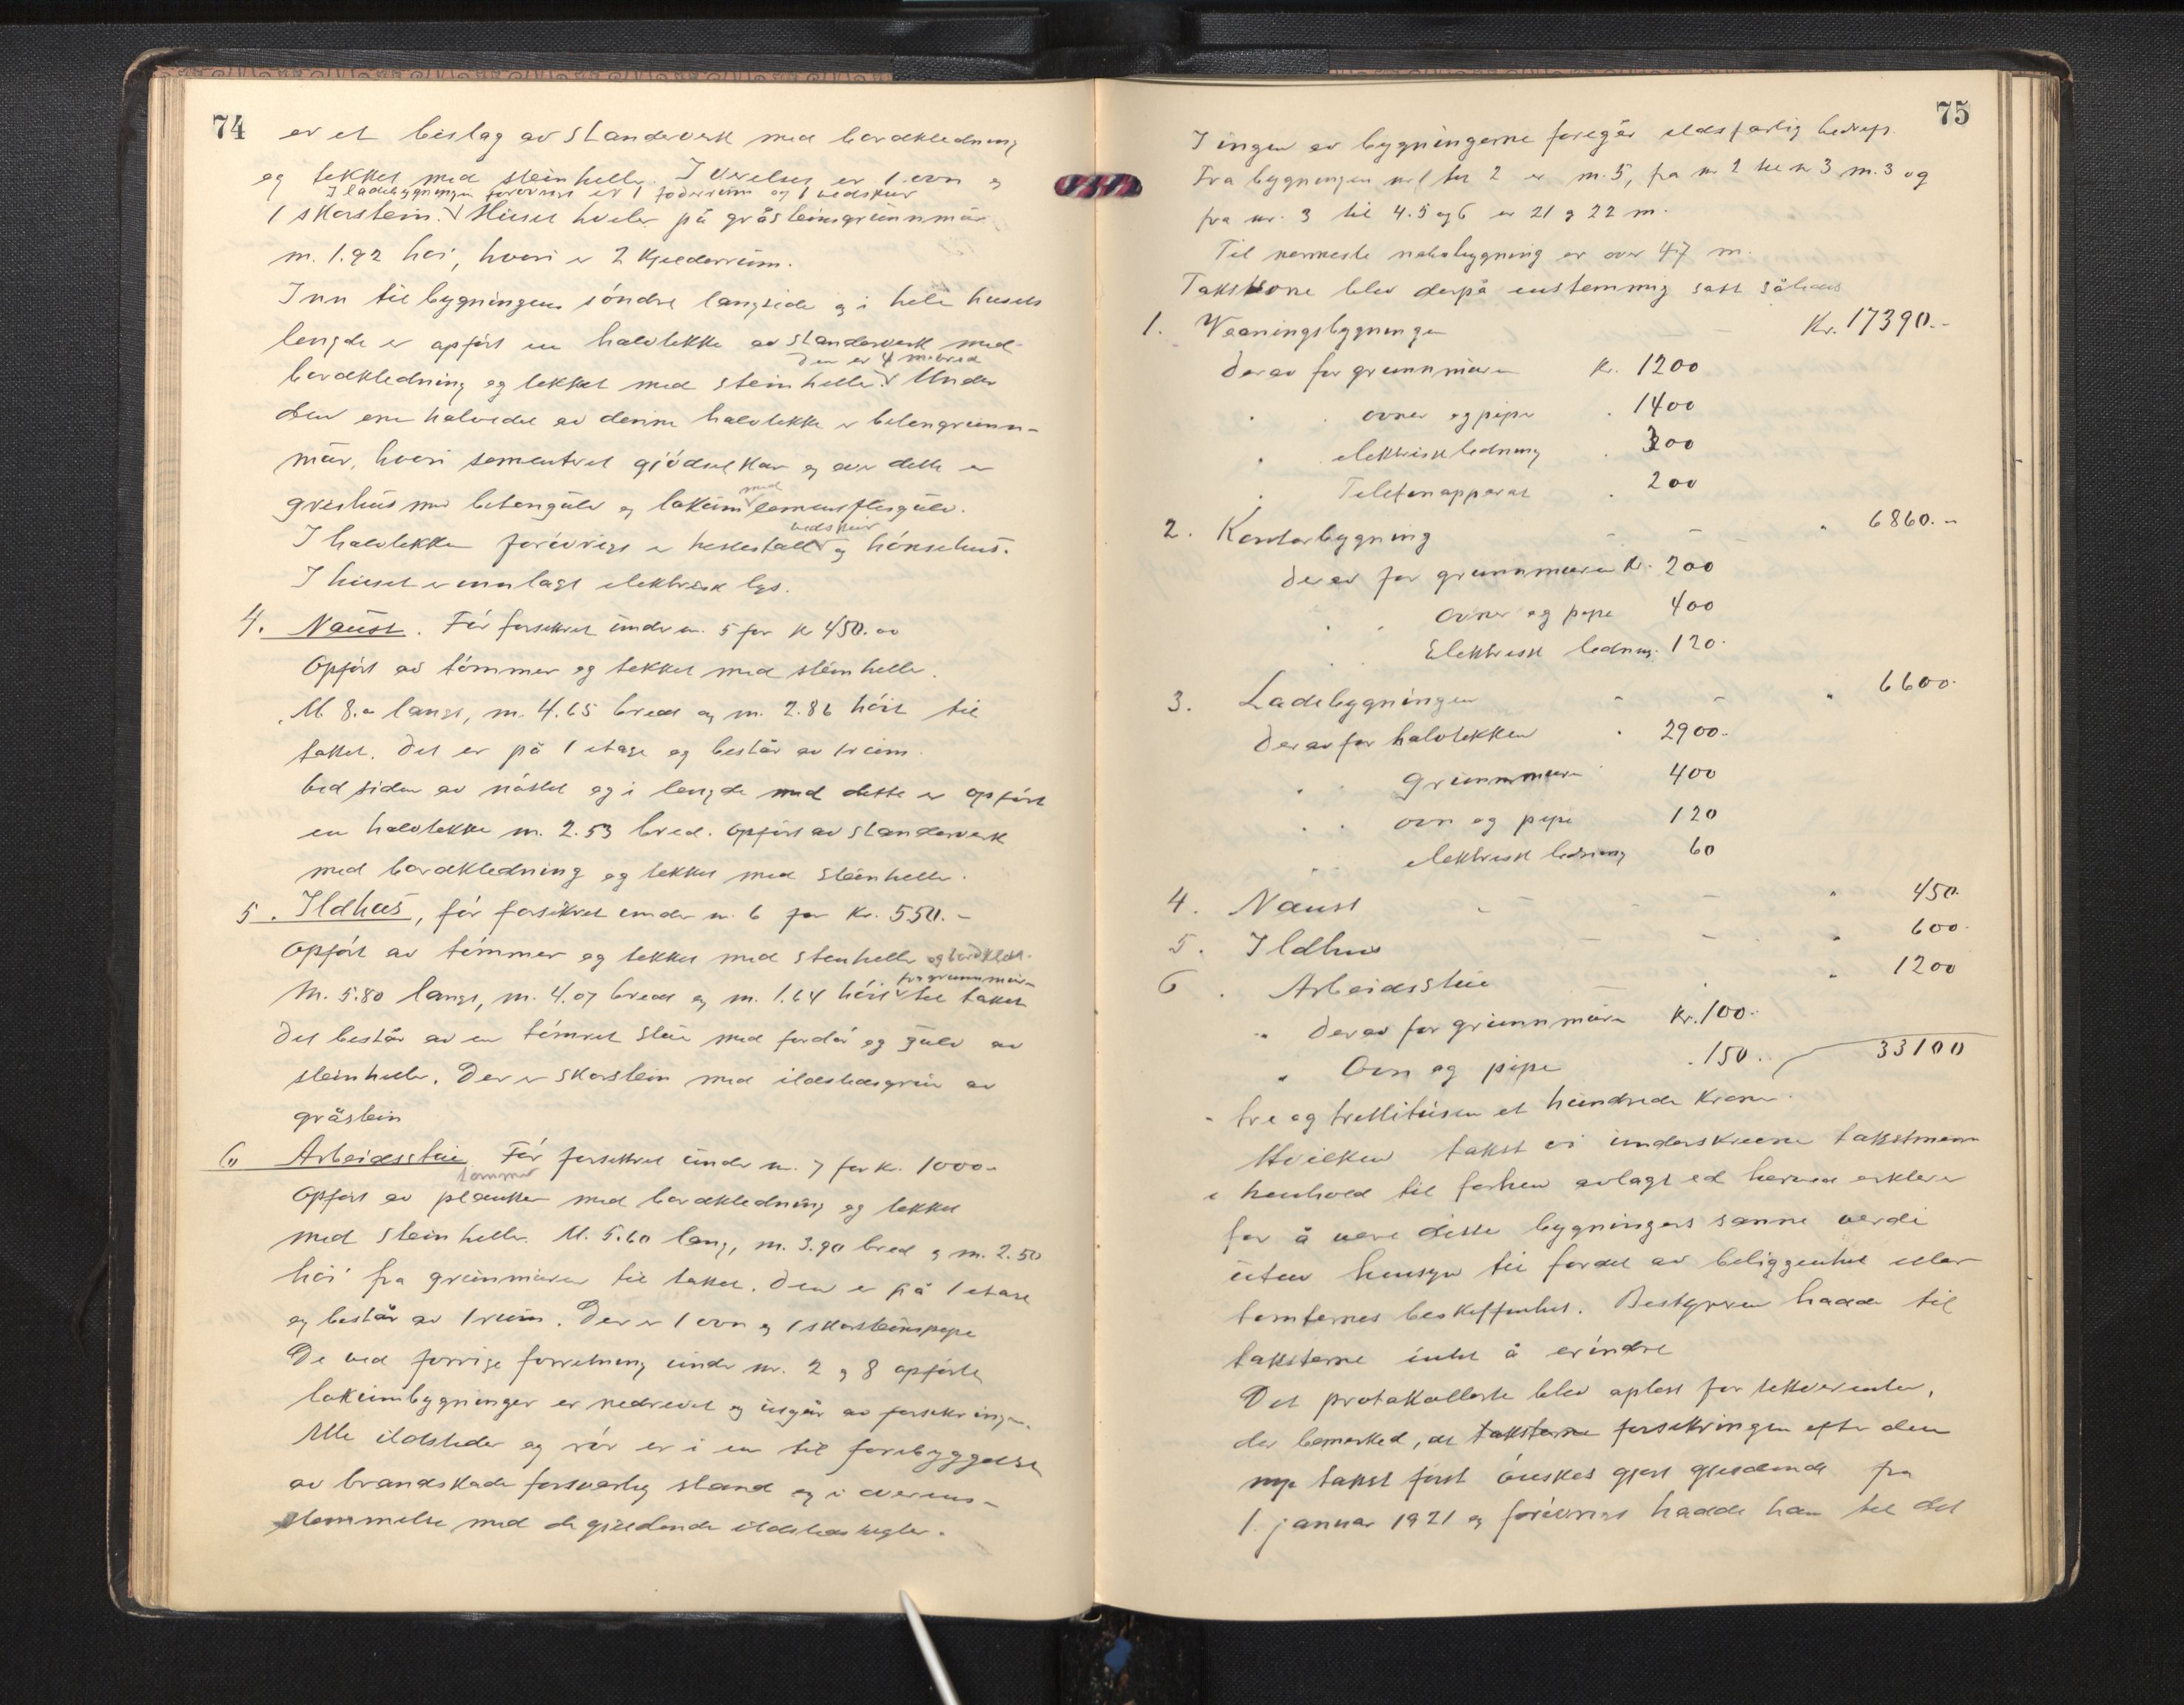 74
er et beslag av standerverk med bordkledning
og tekket med steinheller. I værelset er 1 ovn og
I ladebygningen forøvrigt er 1 foderrum og 1 vedskur
1 skorstein. Huset hviler på gråsteinsgrunnmur
m. 1.92 høi, hvori er 2 kjelderrum.
Inn til bygningens søndre langside og i hele husets
lengde er opført en halvtekke av standerverk med
den er 4 m. bred
bordkledning og tekket med steinheller. Under
den ene halvdel av denne halvtekke er betongrunn-
mur, hvori sementert gjødselkar og over dette er
med
grishus med betongulv og lokum
vedskur
I halvtekken forøvrigt er hestestall og hønsehus.
I huset er innlagt elektrisk lys.
4. Naust. Før forsikret under nr. 5 for kr 450.00
Opført av tømmer og tekket med steinheller.
M. 8.00 langt, m. 4.65 bredt og m. 2.86 høit til
taket. Det er på 1 etage og består av 1 rum.
Ved siden av nøstet og i lengde med dette er opført
en halvtekke m. 2.53 bred. Opført av standerverk
med bordkledning og tekket med steinheller.
5. Ildhus, før forsikret under nr. 6 for Kr. 550.-
Opført av tømmer og tekket med stenheller og bordkledt.
fra grunnmur
M. 5.80 langt, m. 4.07 bredt og m. 1.64 høit til taket
Det består av en tømret stue med fordør og gulv av
steinheller. Der er skorstein med ildstedsgrue av
gråstein
6. Arbeidsstue Før forsikret under nr. 7 for kr. 1000.-
tømmer
Opført av planker med bordkledning og tekket
med steinheller. M. 5.60 lang, m. 3.90 bred og m. 2.50
høi fra grunnmuren til taket. Den er på 1 etage
og består av 1 rum. Der er 1 ovn og 1 skorsteinspipe
De ved forrige forretning under nr. 2 og 8 opførte
lokumbygninger er nedrevet og utgår av forsikringen.
Alle ildsteder og rør er i en til forebyggelse
av brandskade forsvarlig stand og i overens-
stemmelse med de gjeldende ildstedsregler.
75
I ingen av bygningerne foregår ildsfarlig bedrift.
Fra bygningen nr. 1 til 2 er m. 5, fra nr 2 til nr 3 m. 3 og
fra nr. 3 til 4. 5 og 6 er 21 og 22 m.
Til nærmeste nabobygning er over 47 m.
Takstene blev derpå enstemmig satt således
1. Vaaningsbygningen Kr. 17390.-
Derav for grunnmuren Kr. 1200
" " ovner og piper " 1400
" " elektrisk ledning " 300
" Telefonapparat " 200
2. Kontorbygning - - " 6860.-
Derav for grunnmuren Kr. 200
" " ovner og pipe 400
" " Elektrisk ledning. 120.
3. Ladebygningen - - " 6600.
Derav for halvtekken " 2900.-
" " grunnmuren 400
" " ovn og pipe 120
" " elektrisk ledning 60
4. Naust - - - - " 450.
5. Ildhus - - - " 600.
6. Arbeidsstue - " 1200
" Derav for grunnmuren Kr. 100.
" Ovn og pipe " 150. 33100
- tre og trettitusen et hundrede Kroner.
Hvilken takst vi underskrevne takstmenn
i henhold til forhen avlagt ed herved erklærer
for å være disse bygningers sanne verdi
uten hensyn til fordel av beliggenhet eller
tomternes beskaffenhet. Bestyreren hadde til
taksterne intet å erindre
Det protokollerte blev oplest for rekvirenten,
der bemerked, at taksterne forsikringen efter den
nye takst først ønskes gjort gjeldende fra
1. januar 1921 og forøvrigt hadde han til det